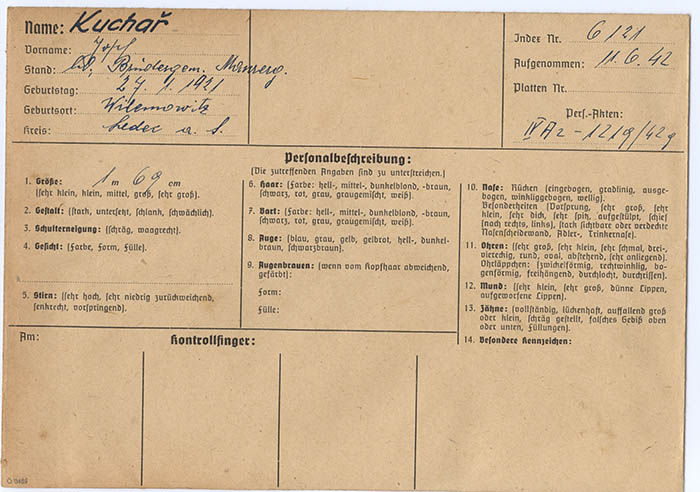 Name: Kuchař
Vorname: Josef
Stand: led., Brüdergem.
Geburtstag: 27. 1. 1921
Geburtsort: Wilemowitz
Kreis: Ledec a. S.
Index Nr. 6121
Aufgenommen: 11. 6. 42
Platten Nr.
Pers.-Akten:
IV A 2 - 1219/42g
Personalbeschreibung:
(Die zutreffenden Angaben sind zu unterstreichen.)
1. Größe: 1 m 69 cm
(sehr klein, klein, mittel, groß, sehr groß).
2. Gestalt: (stark, untersetzt, schlank, schwächlich).
3. Schulterneigung: (schräg, waagrecht).
4. Gesicht: (Farbe, Form, Fülle).
5. Stirn: (sehr hoch, sehr niedrig zurückweichend,
senkrecht, vorspringend).
6. Haar: (Farbe: hell-, mittel-, dunkelblond, -braun,
schwarz, rot, grau, graugemischt, weiß).
7. Bart: (Farbe: hell-, mittel-, dunkelblond, -braun,
schwarz, rot, grau, graugemischt, weiß).
8. Auge: (blau, grau, gelb, gelbrot, hell-, dunkel-
braun, schwarzbraun).
9. Augenbrauen: (wenn vom Kopfhaar abweichend,
gefärbt):
Form:
Fülle:
10. Nase: Rücken (eingebogen, gradlinig, ausge-
bogen, winkliggebogen, wellig).
Besonderheiten (Vorsprung, sehr groß, sehr
klein, sehr dick, sehr spitz, aufgestülpt, schief
(nach rechts, links), stark sichtbare oder verdeckte
Nasenscheidewand, Adler-, Trinkernase).
11. Ohren: (sehr groß, sehr klein, sehr schmal, drei-,
viereckig, rund, oval, abstehend, sehr anliegend).
Ohrläppchen: (zwickelförmig, rechtwinklig, bo-
genförmig, freihängend, durchlocht, durchrissen).
12. Mund: (sehr klein, sehr groß, dünne Lippen,
aufgeworfene Lippen).
13. Zähne: (vollständig, lückenhaft, auffallend groß
oder klein, schräg gestellt, falsches Gebiß oben
oder unten, Füllungen).
14. Besondere Kennzeichen:
Am:
Kontrollfinger: